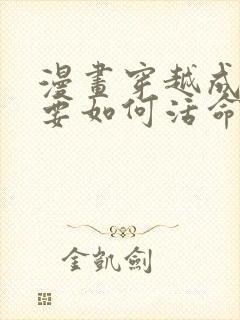 漫畫穿越成
要如何活命
金凱劍